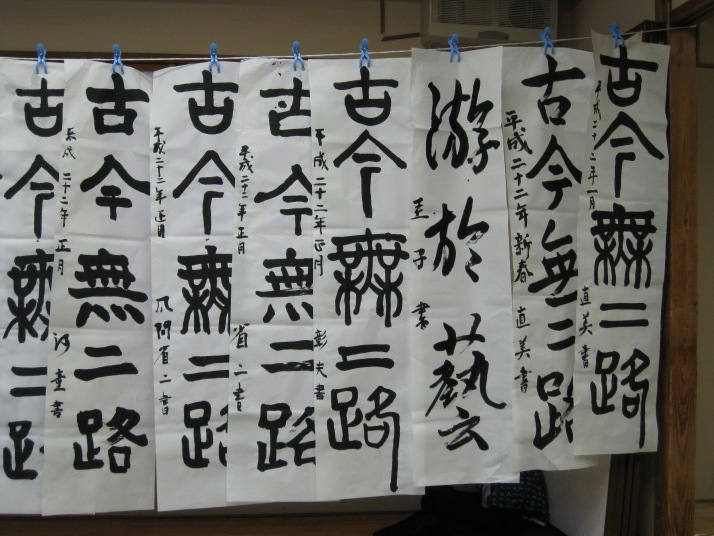 古今無二路
平成二十二年一月 直美書
古今無二路
平成二十二年新春 直美書
游於藝
圭子書
古今無二路
平成二十二年正月 彰夫書
古今無二路
平成二十二年正月 省二書
古今無二路
平成二十二年正月 風間省二書
古今無二路
平成二十二年正月 書
古今無二路